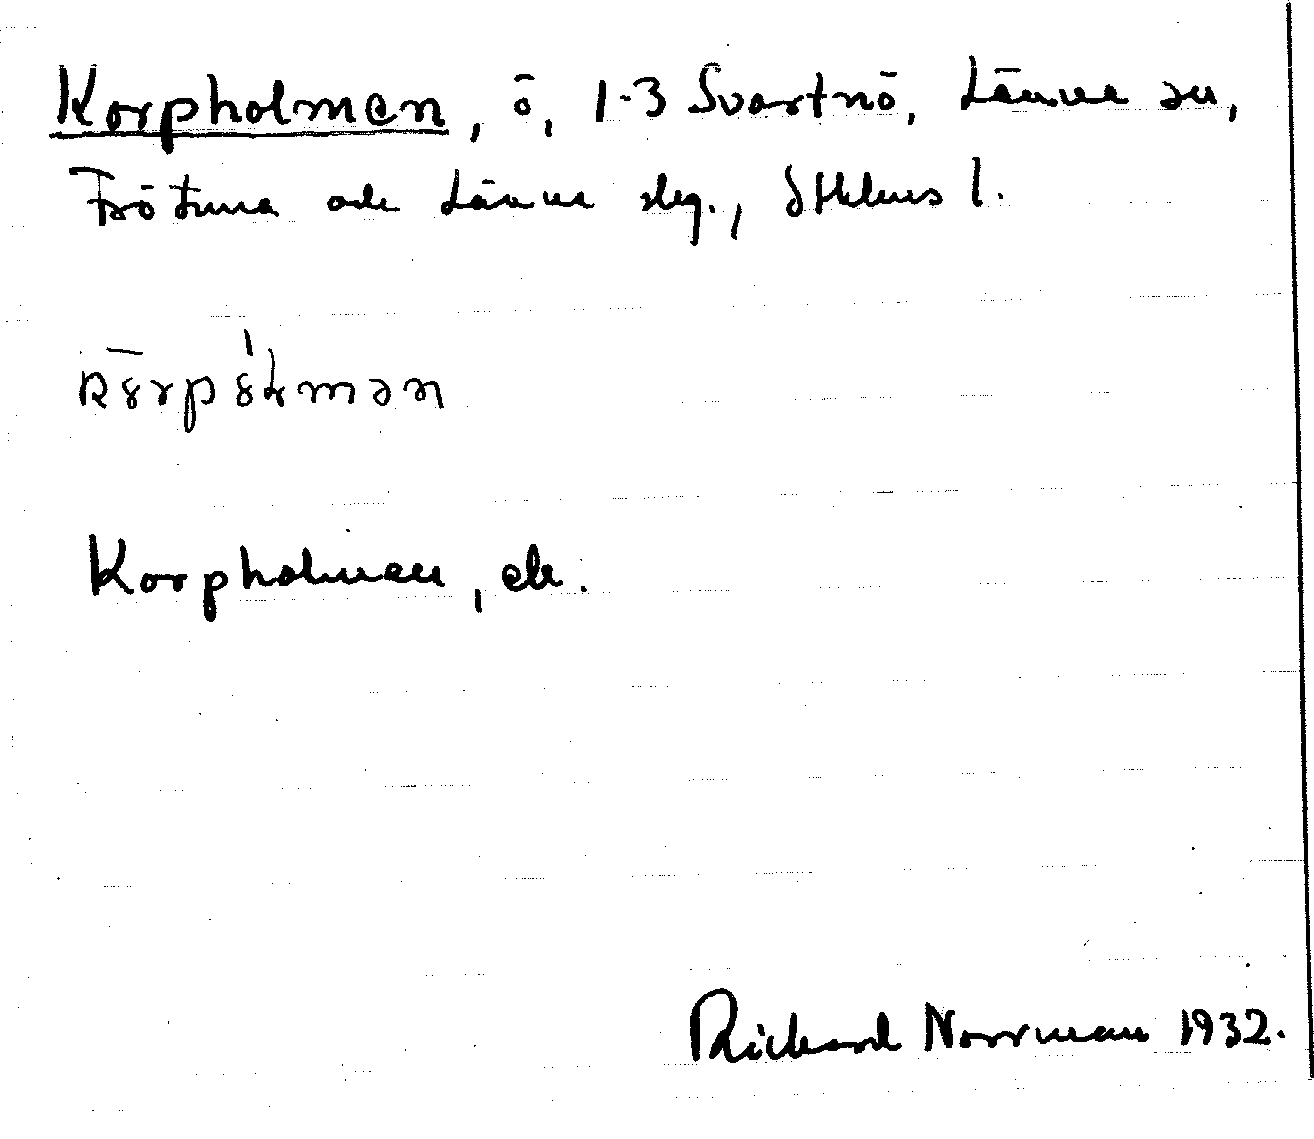 Korpholmen, ö, 1-3 Svartnö, Länna sn,
Frötuna och Länna skg., Sthlms l.
Korpholmen, ek.
Rickard Norrman 1932.